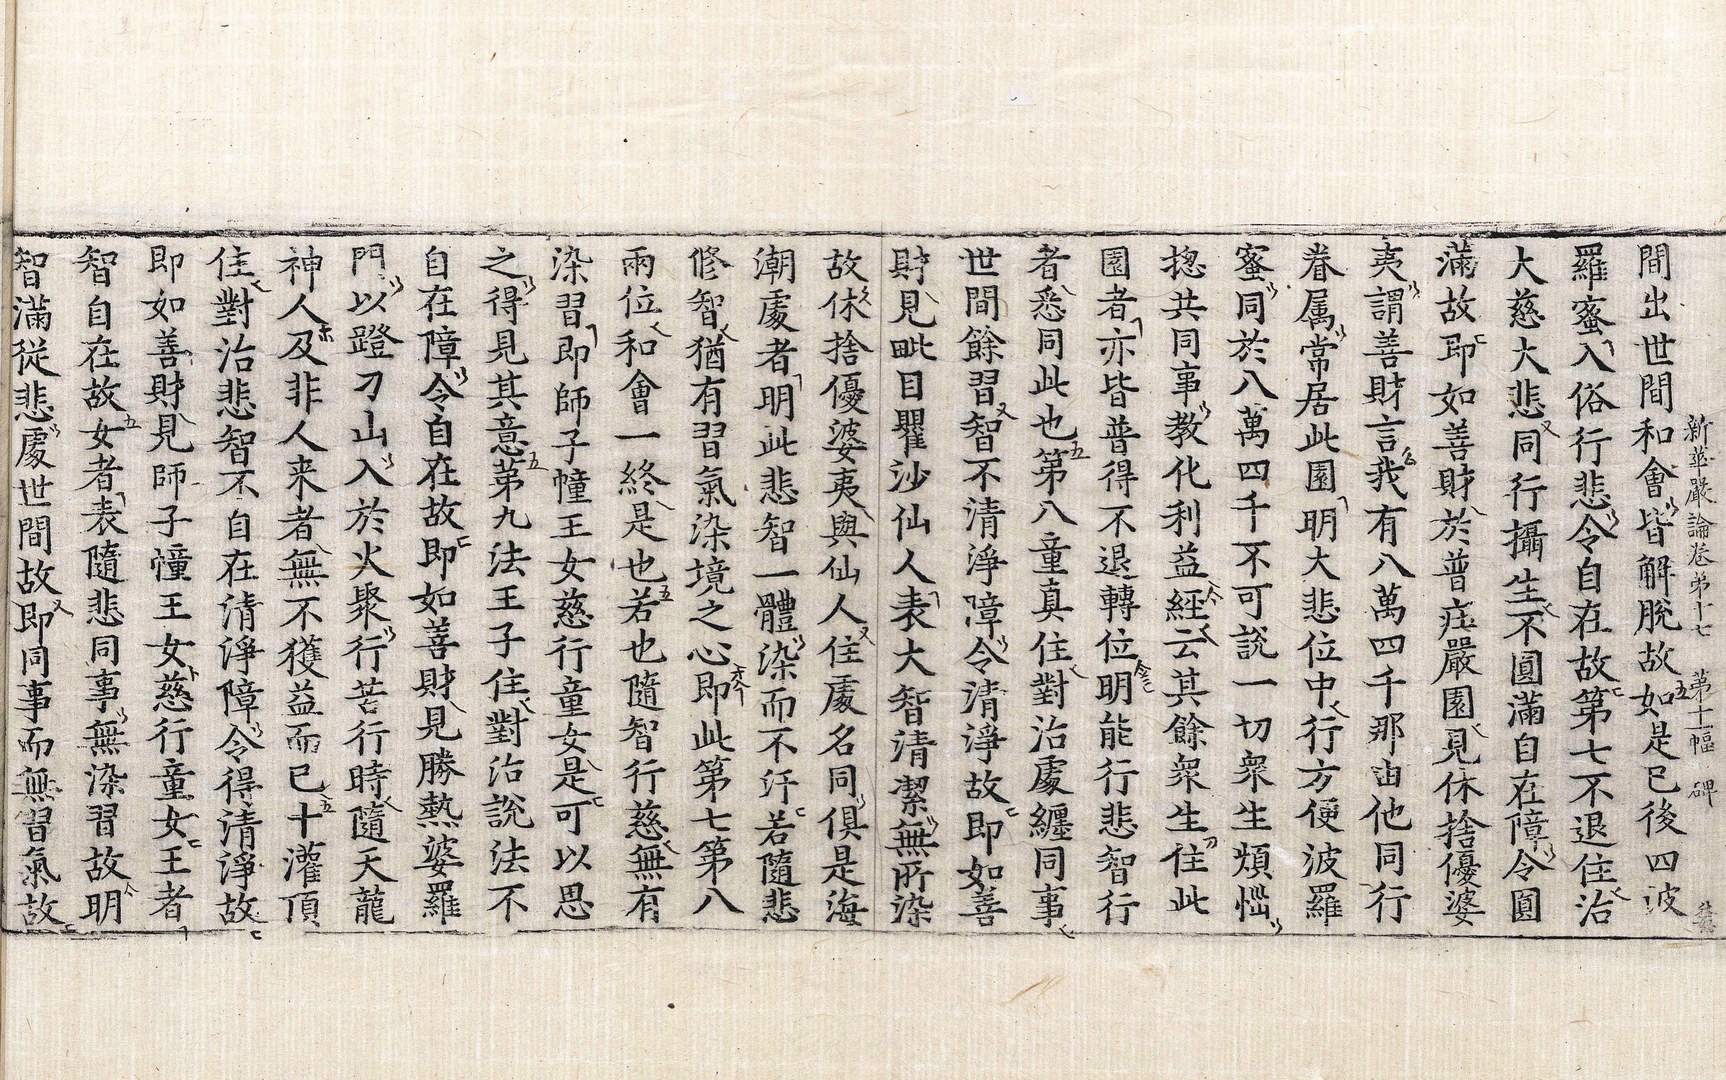 新華嚴論卷第十七 第十一幅 碑
間出世間和會皆解脫故如是已後四波
羅蜜入俗行悲令自在故第七不退住治
大慈大悲同行攝生不圓滿自在障令圓
滿故即如善財於普庄嚴園見休捨優婆
夷謂善財言我有八萬四千那由他同行
眷属常居此園明大悲位中行方便波羅
蜜同於八萬四千不可說一切衆生煩惱
揔共同事教化利益經云其餘衆生住此
園者亦皆普得不退轉位明能行悲智行
者悉同此也第八童真住對治處纏同事
世間餘習智不清淨障令清淨故即如善
財見毗目瞿沙仙人表大智清潔無所染
故休捨優婆夷與仙人住處名同俱是海
潮處者明此悲智一體染而不汙若隨悲
修智猶有習氣染境之心即此第七第八
兩位和會一終是也若也隨智行慈無有
染習即師子幢王女慈行童女是可以思
之得見其意第九法王子住對治說法不
自在障令自在故即如善財見勝熱婆羅
門以蹬刀山入於火聚行苦行時隨天龍
神人及非人来者無不獲益而已十灌頂
住對治悲智不自在清淨障令得清淨故
即如善財見師子幢王女慈行童女王者
智自在故女者表隨悲同事無染習故明
智滿從悲處世間故即同事而無習氣故